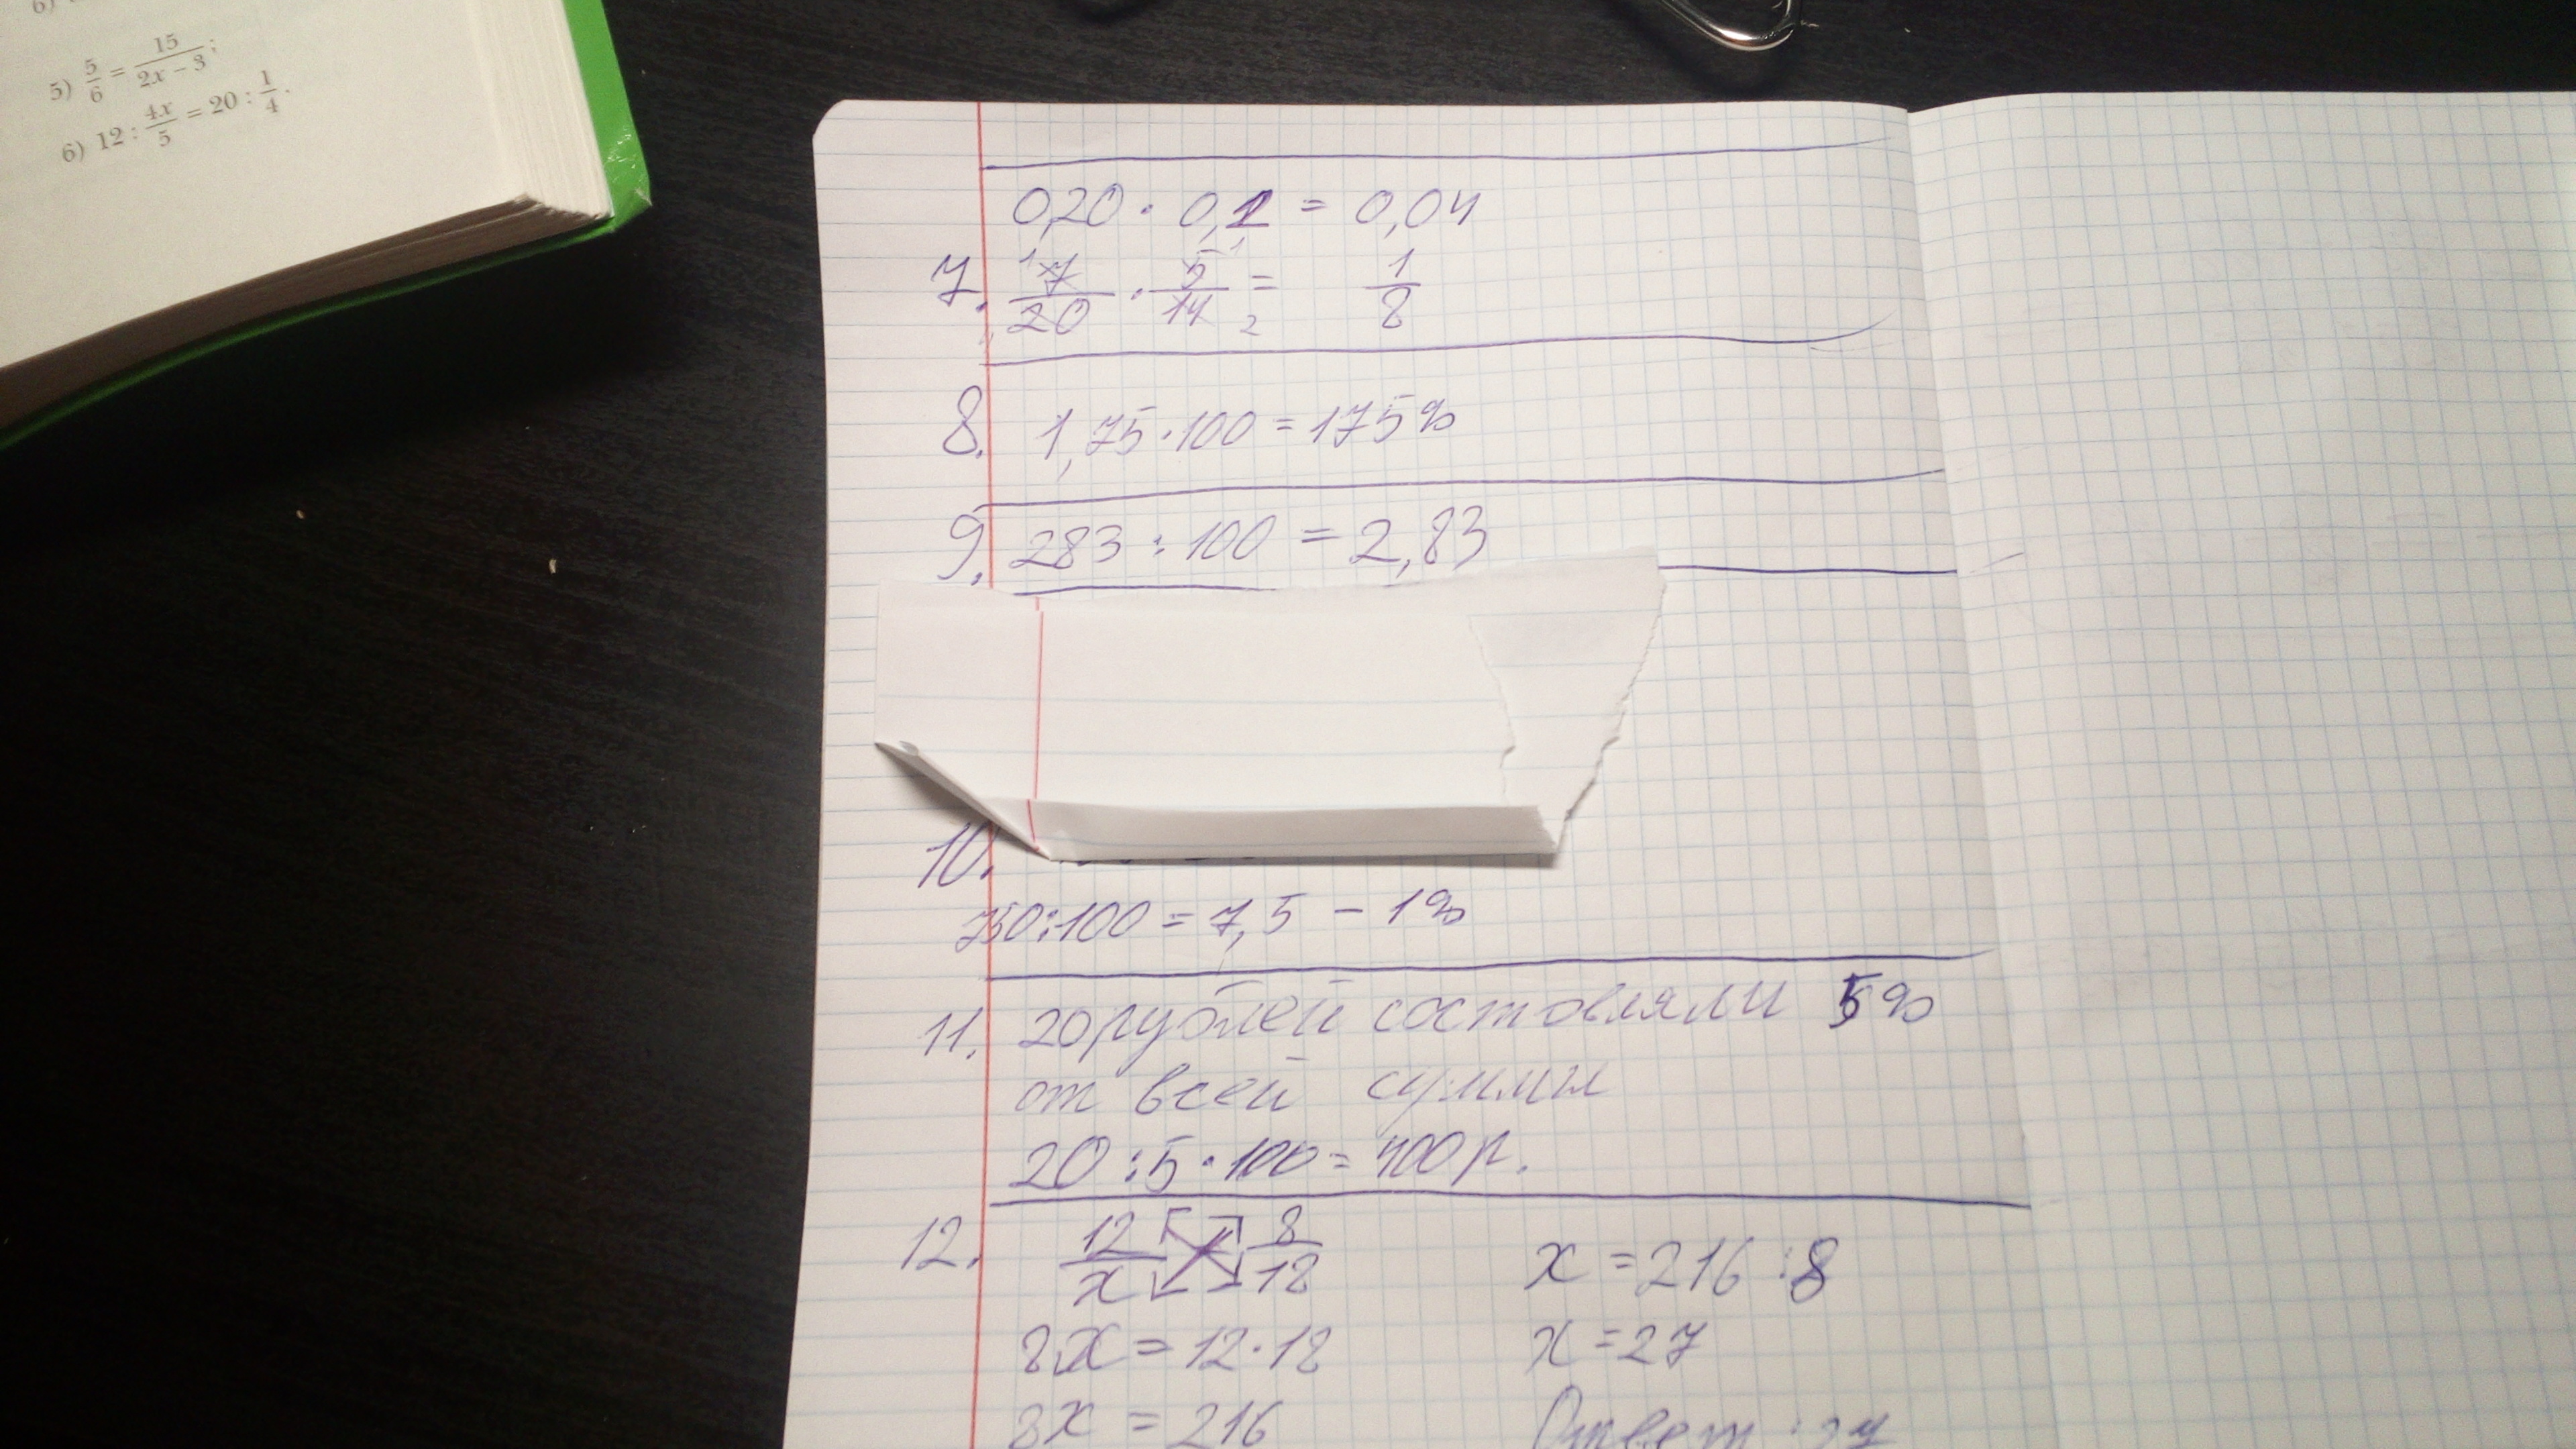 5) 5/6 = 15/(2x − 3);
6) 12 : 4x/5 = 20 : 1/4.
0,20 · 0,2 = 0,04
7. 7/20 · 5/14 = 1/8
8. 1,75 · 100 = 175%
9. 283 : 100 = 2,83
10.
750 : 100 = 7,5 – 1%
11. 20 рублей составляли 5%
от всей суммы
20 : 5 · 100 = 400 р.
12. 12/x 8/18
8x = 12 · 18
8x = 216
x = 216 : 8
x = 27
Ответ: 27